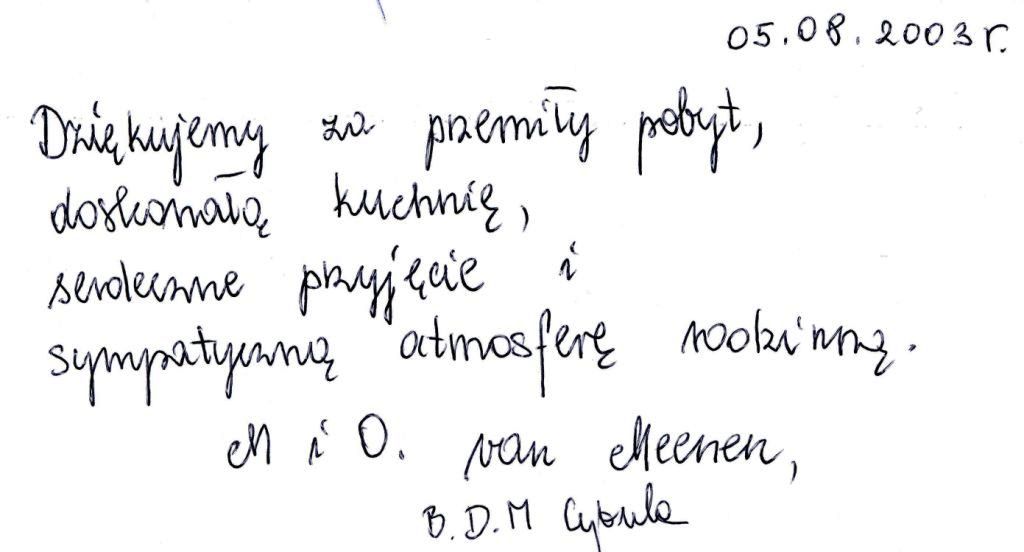 05.08.2003 r.
Dziękujemy za przemiły pobyt,
doskonałą kuchnię,
serdeczne przyjęcie i
sympatyczną atmosferę rodzinną.
M i O. van Meenen,
B.D.M Cybula